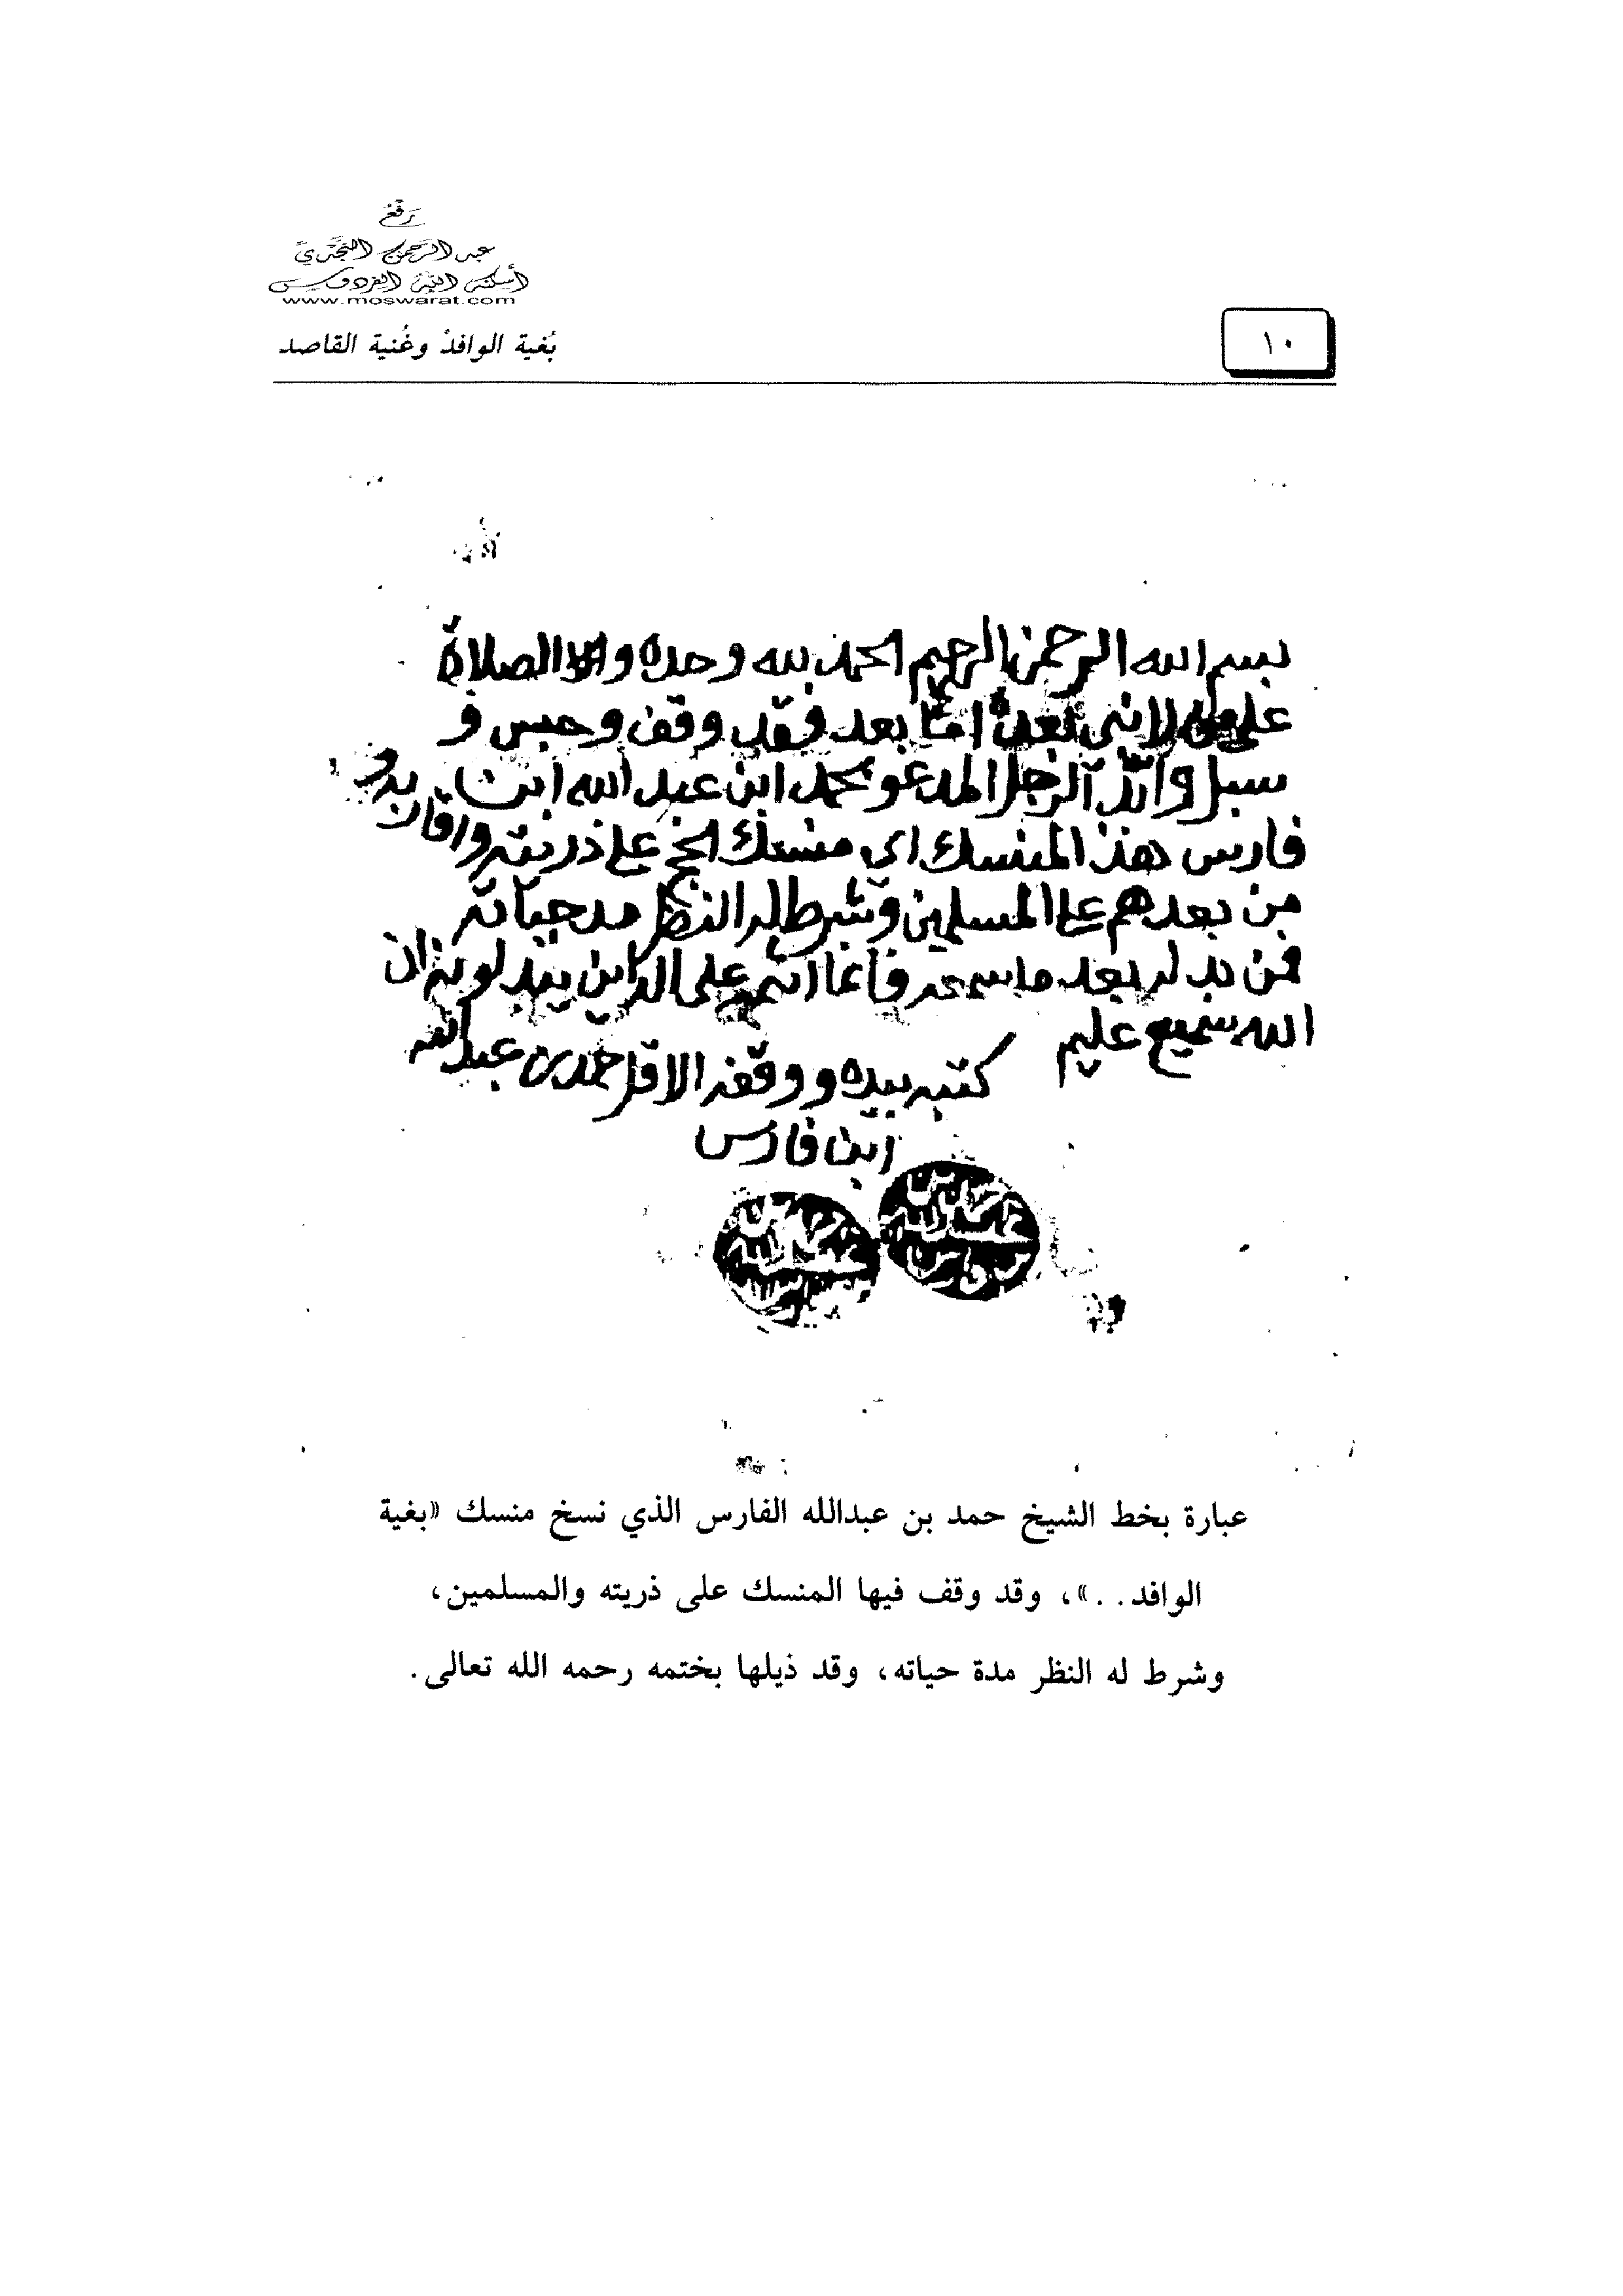 رفع
عبد الرحمن النجدي
أسكنه الله الفردوس
www.moswarat.com
١٠
بُغية الوافدْ وغُنية القاصد
بسم الله الرحمن الرحيم الحمد لله وحده والصلاة
على من لا نبي بعده اما بعد فقد وقف وحبس و
سبل وابد الرجل المدعو بحمد ابن عبد الله ابن
فارس هذا المنسك اي منسك الحج على ذريته
من بعدهم على المسلمين وشرط له النظر مد حياته
فمن بدله بعد ما سمعه فانما اثمه على الذين يبدلونه ان
الله سميع عليم
كتبه بيده ووقفه الاقل حمد بن عبد الله
ابن فارس
عبارة بخط الشيخ حمد بن عبدالله الفارس الذي نسخ منسك «بغية
الوافد. .»، وقد وقف فيها المنسك على ذريته والمسلمين،
وشرط له النظر مدة حياته، وقد ذيلها بختمه رحمه الله تعالى.